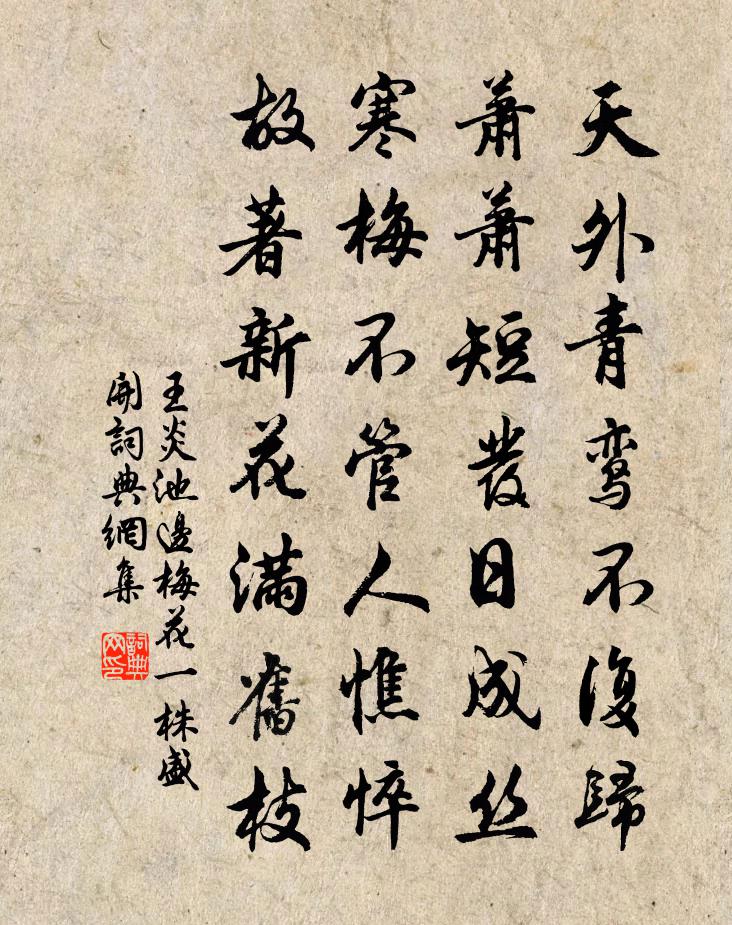 天外青鸾不復歸
蕭蕭短發日成丝
寒梅不管人憔悴
故著新花满舊枝
王炎池邊梅花一株盛
開詞典網集
詞典
网印